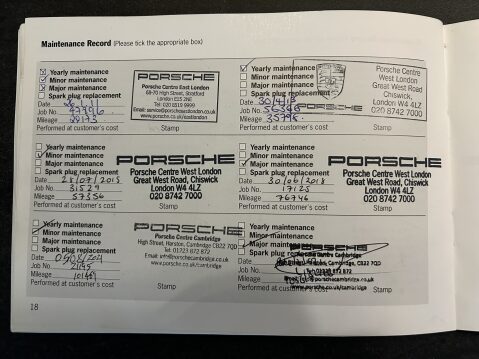 Maintenance Record (Please tick the appropriate box)
Yearly maintenance
Minor maintenance
Major maintenance
Spark plug replacement
Date
Job No. 47996
Mileage 20173
Performed at customer's cost
PORSCHE
Porsche Centre East London
68-70 High Street, Stratford
London E15 2NE
Tel: 020 8519 9999
Stamp
Yearly maintenance
Minor maintenance
Major maintenance
Spark plug replacement
Date 30/4/13
Job No. 56346
Mileage 35796
Performed at customer's cost
PORSCHE
Porsche Centre
West London
Great West Road
Chiswick,
London W4 4LZ
020 8742 7000
Stamp
Yearly maintenance
Minor maintenance
Major maintenance
Spark plug replacement
Date 28/07/2015
Job No. 31529
Mileage 57356
Performed at customer's cost
PORSCHE
Porsche Centre West London
Great West Road, Chiswick
London W4 4LZ
020 8742 7000
Stamp
Yearly maintenance
Minor maintenance
Major maintenance
Spark plug replacement
Date 30/06/2018
Job No. 17125
Mileage 76746
Performed at customer's cost
PORSCHE
Porsche Centre West London
Great West Road, Chiswick
London W4 4LZ
020 8742 7000
Stamp
Yearly maintenance
Minor maintenance
Major maintenance
Spark plug replacement
Date
Job No.
Mileage
Performed at customer's cost
PORSCHE
Porsche Centre Cambridge
High Street, Harston, Cambridge CB22 7QD
Tel: 01223 872 872
www.porsche.co.uk/cambridge
Stamp
Yearly maintenance
Minor maintenance
Major
Spark plug
Date
Job No.
Mileage
Performed at customer's cost
PORSCHE
Porsche Centre Cambridge
Cambridge, CB22 7QD
www.porsche.co.uk/cambridge
Stamp
18